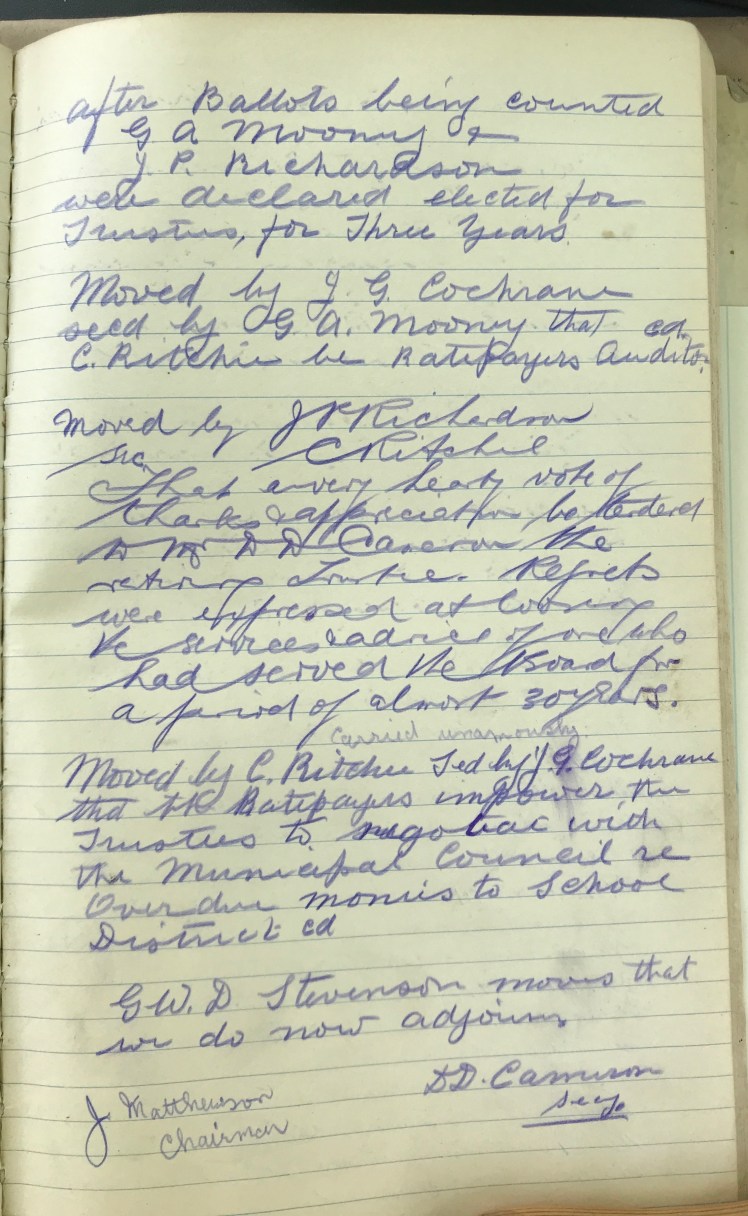 after Ballots being counted
G A Mooney &
J P. Richardson
were declared elected for
Trustees, for Three Years
Moved by J G. Cochrane
secd by G A. Mooney that cd.
C. Ritchie be Ratepayers Auditor
Moved by J P Richardson
Sec. C Ritchie
That a very hearty vote of
thanks & appreciation be tendered
to Mr D D Cameron the
retiring Trustee. Regrets
were expressed at loosing
the services & advice of one who
had served the Board for
a period of almost 30 years.
Carried unamously
Moved by C. Ritchie Sed by J. G. Cochrane
that the Ratepayers impower the
Trustees to negotiac with
the Municipal Council re
Overdue monies to School
District cd
G W. D Stevenson moves that
we do now adjourn
D D. Cameron
Secy.
J Matthewson
Chairman